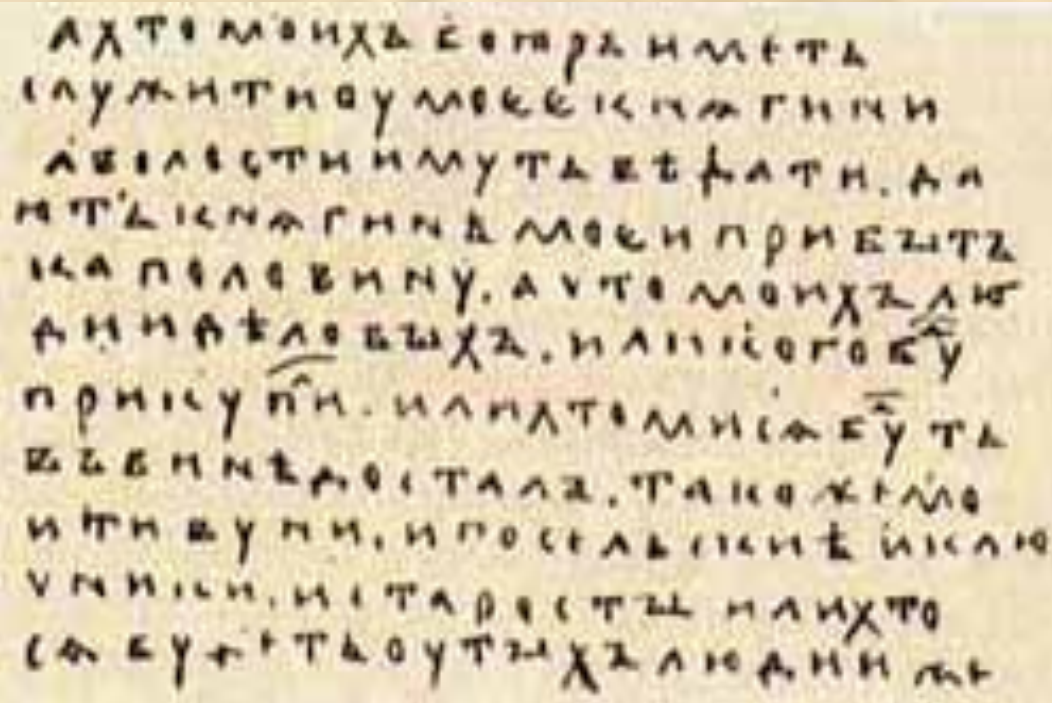 а хто моихъ боꙗръ иметь
служити оу моее кнѧгини
а волости имуть вѣдати. да
ють кнѧгинѣ моеи прибытъ
ка половину. а хто моихъ лю
дии дѣловыхъ. или кого бу
прикупи. или хто ми сѧ буть
въ винѣ досталъ. тако же мо
и тивуни. и посельскиѣ и клю
чники. и старосты или хто
сѧ будеть оу тыхъ людии же